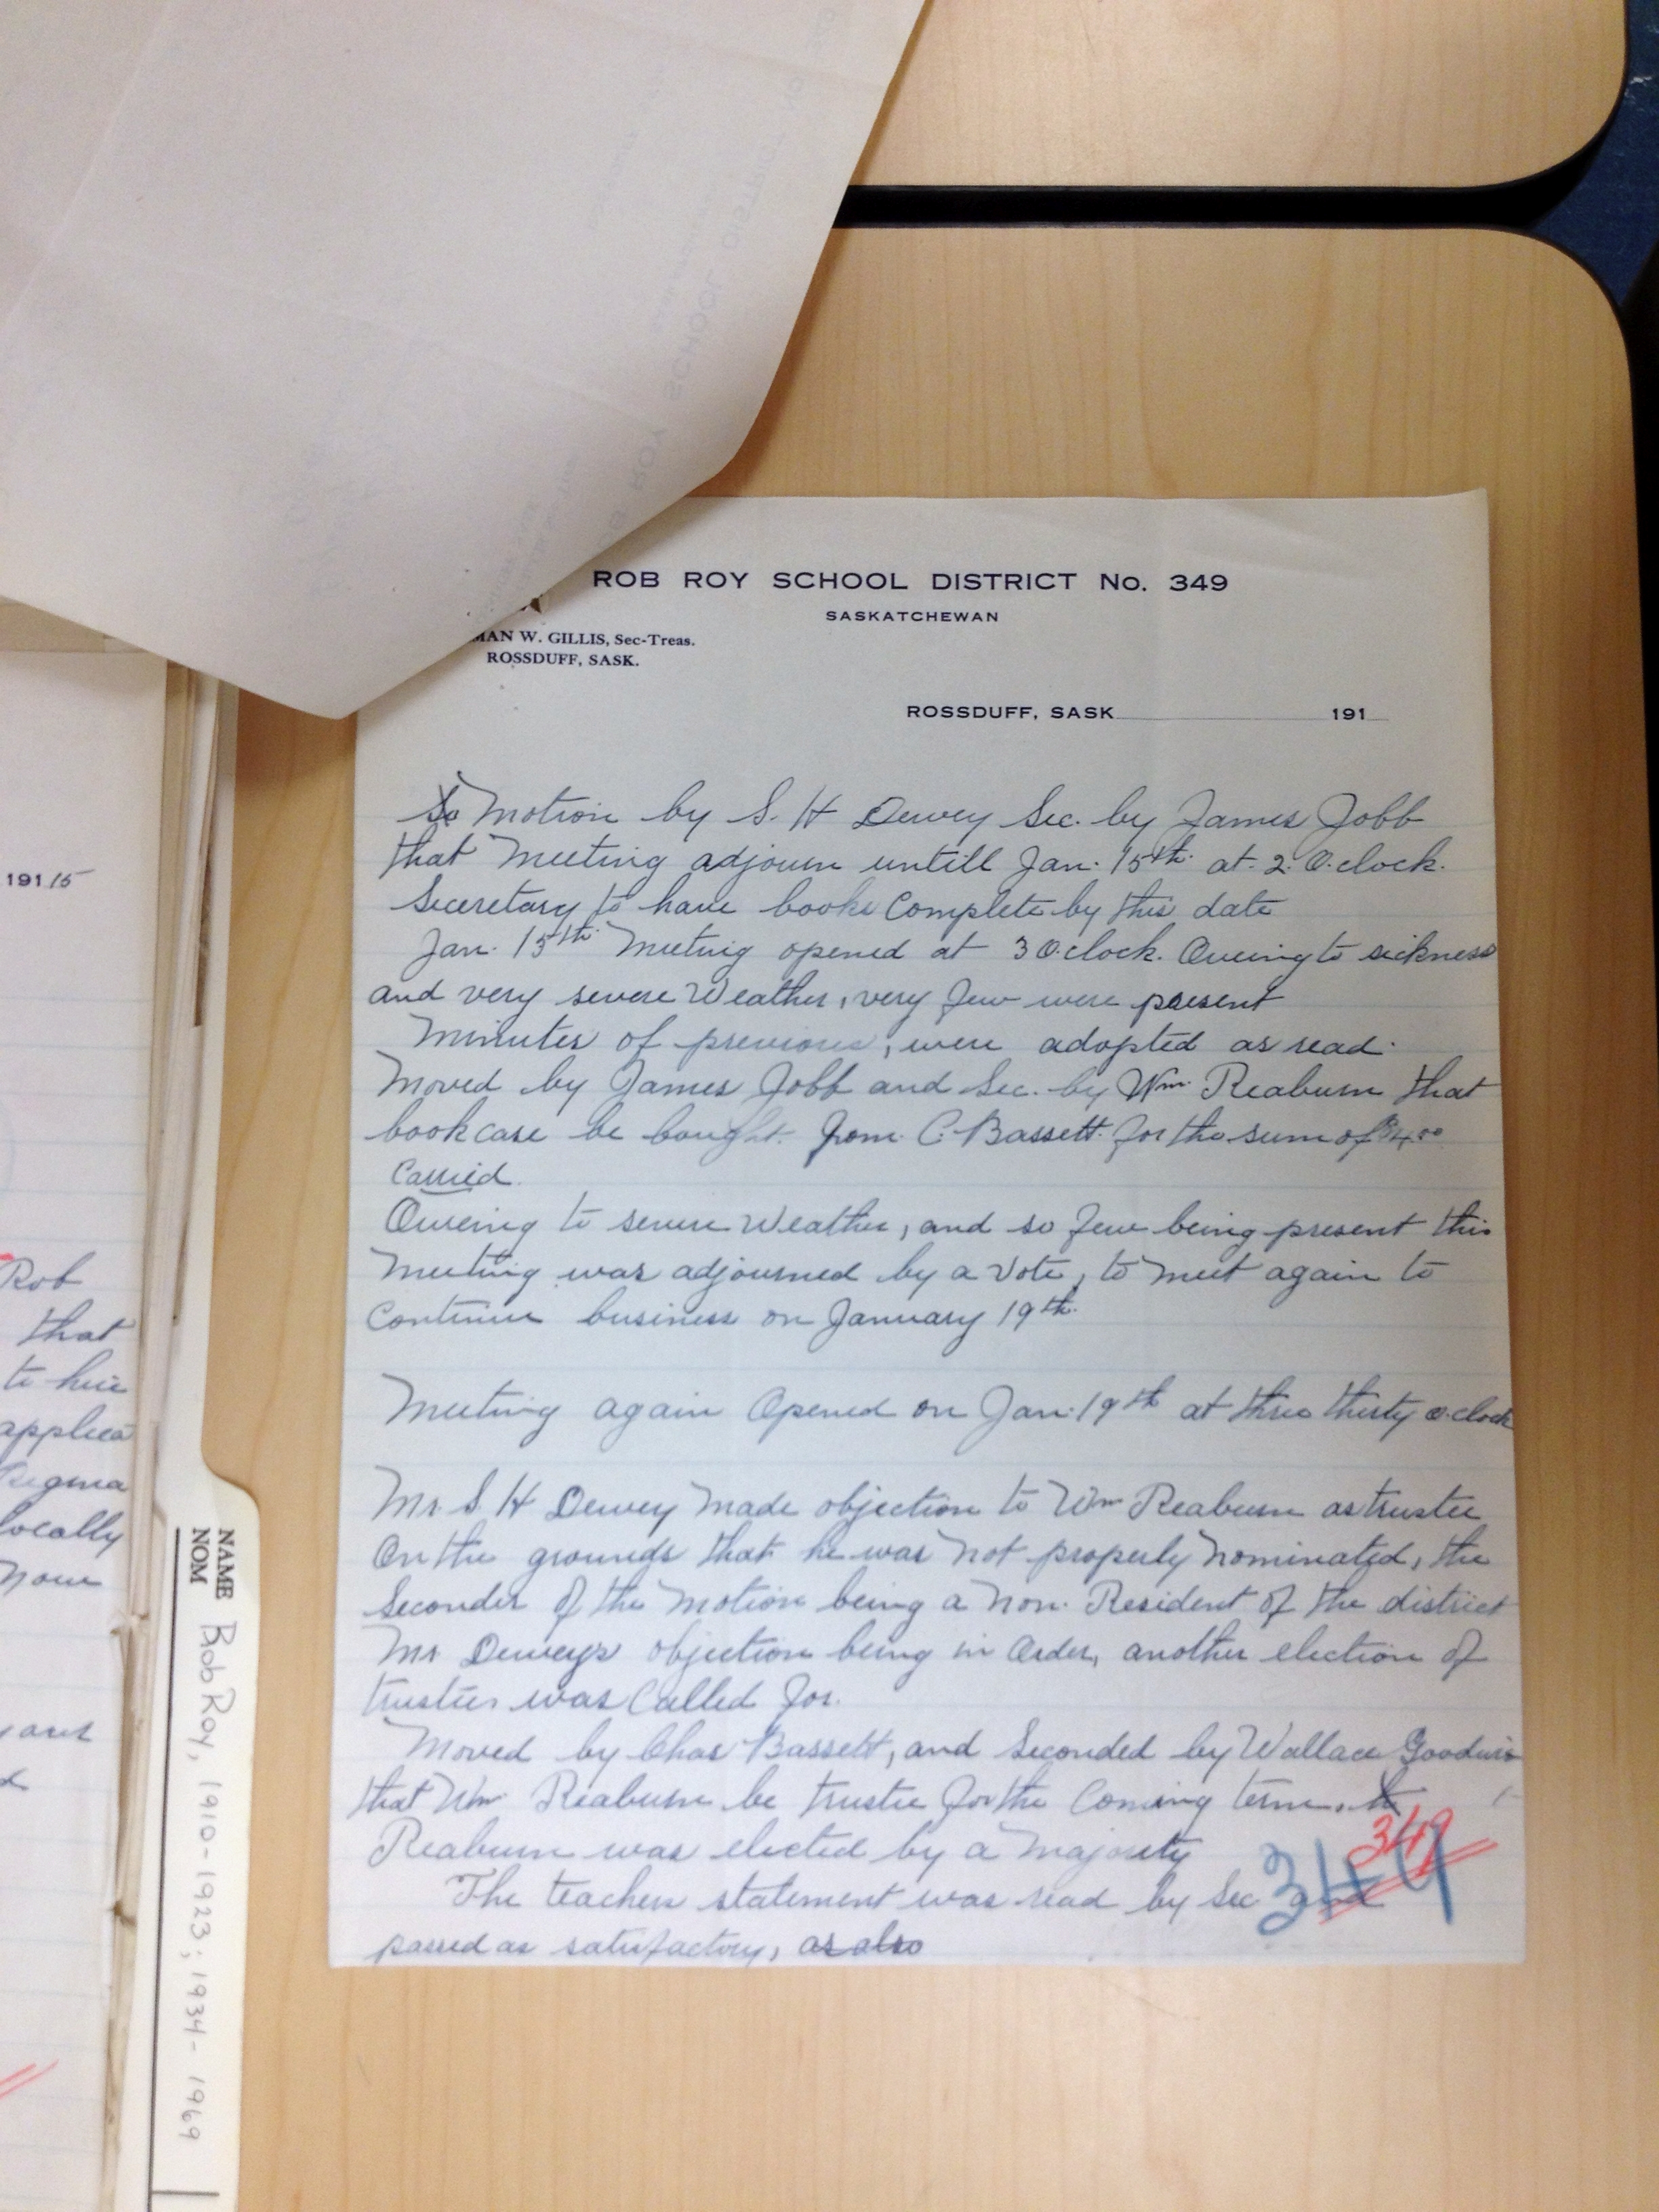 ROB ROY SCHOOL DISTRICT No. 349
SASKATCHEWAN
MAN W. GILLIS, Sec-Treas.
ROSSDUFF, SASK.
ROSSDUFF, SASK 191
Motion by S. H Dewey Sec. by James Jobb
that Meeting adjourn untill Jan. 15th. at. 2. O.clock.
Secretary to have books Complete by this date
Jan. 15th. Meeting opened at 3 O.clock. Oweing to sickness
and very severe Weather, very few were present
Minutes of previous, were adopted as read.
Moved by James Jobb and Sec. by Wm. Reaburn that
bookcase be bought from C. Bassett for the sum of $4.00
Carried.
Oweing to severe Weather, and so few being present this
Meeting was adjourned by a Vote, to meet again to
Continue business on January 19th.
Meeting again Opened on Jan. 19th at three thirty o.clock
Mr. S. H Dewey Made objection to Wm Reaburn as trustee
On the grounds that he was not properly nominated, the
Seconder of the Motion being a Non. Resident of the district
Mr Dewey's objection being in Order, another election of
trustees was Called for.
Moved by Chas Bassett, and Seconded by Wallace Goodwin
that Wm Reaburn be trustee for the Coming term.
Reaburn was elected by a Majority
349
The teachers statement was read by Sec and
349
passed as satisfactory, as also
191 15
Rob
that
to hire
applica
Regina
locally
now
NAME
NOM
Bob Roy, 1910-1923; 1934-1969